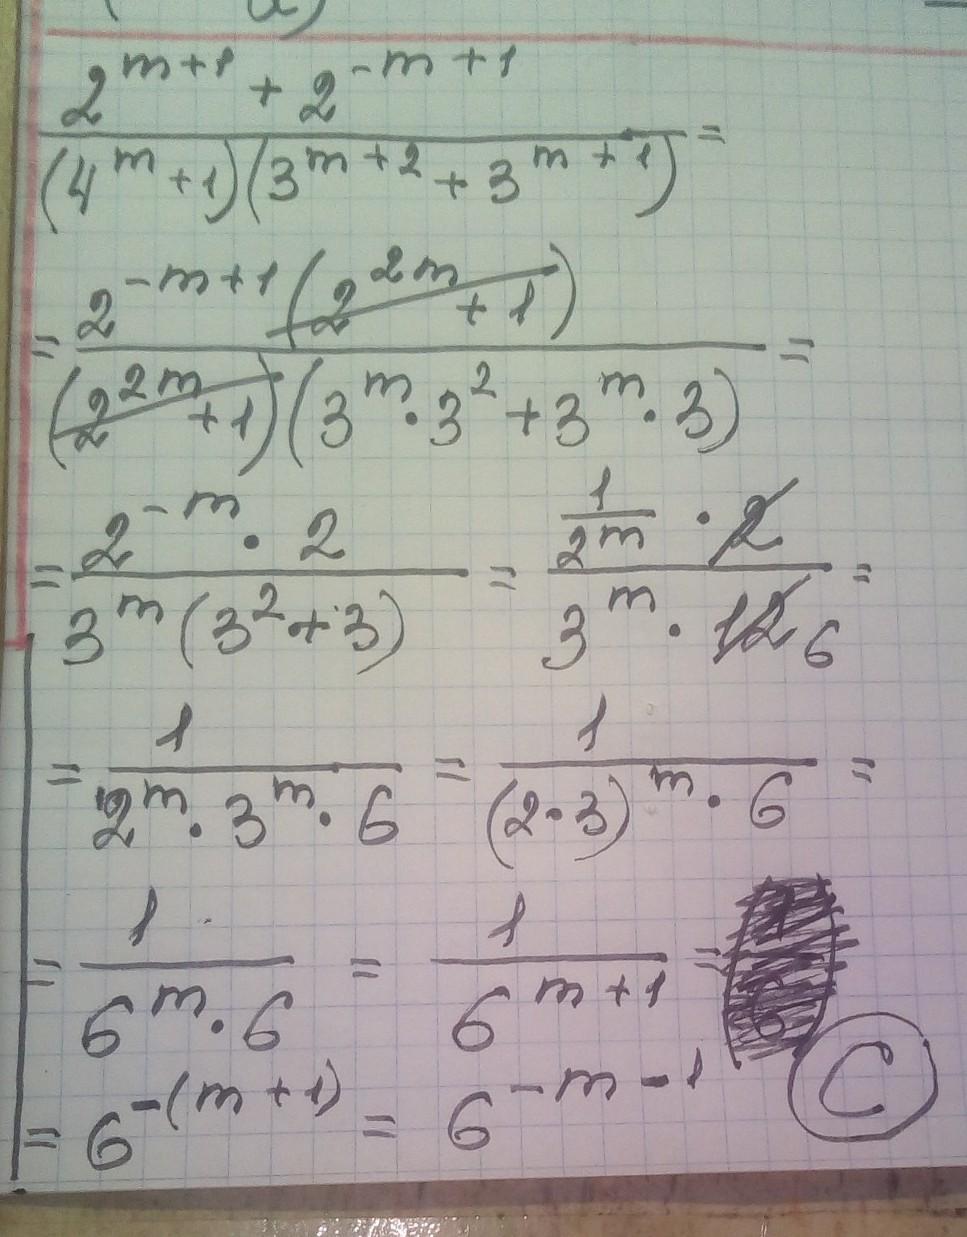 2^{m+1} + 2^{-m+1} / (4^m + 1)(3^{m+2} + 3^{m+1}) =
= 2^{-m+1} (2^{2m} + 1) / (2^{2m} + 1)(3^m · 3^2 + 3^m · 3) =
= 2^{-m} · 2 / 3^m (3^2 + 3) = 1/2^m · 2 / 3^m · 12 6 =
= 1 / 2^m · 3^m · 6 = 1 / (2 · 3)^m · 6 =
= 1 / 6^m · 6 = 1 / 6^{m+1} =
= 6^{-(m+1)} = 6^{-m-1} C